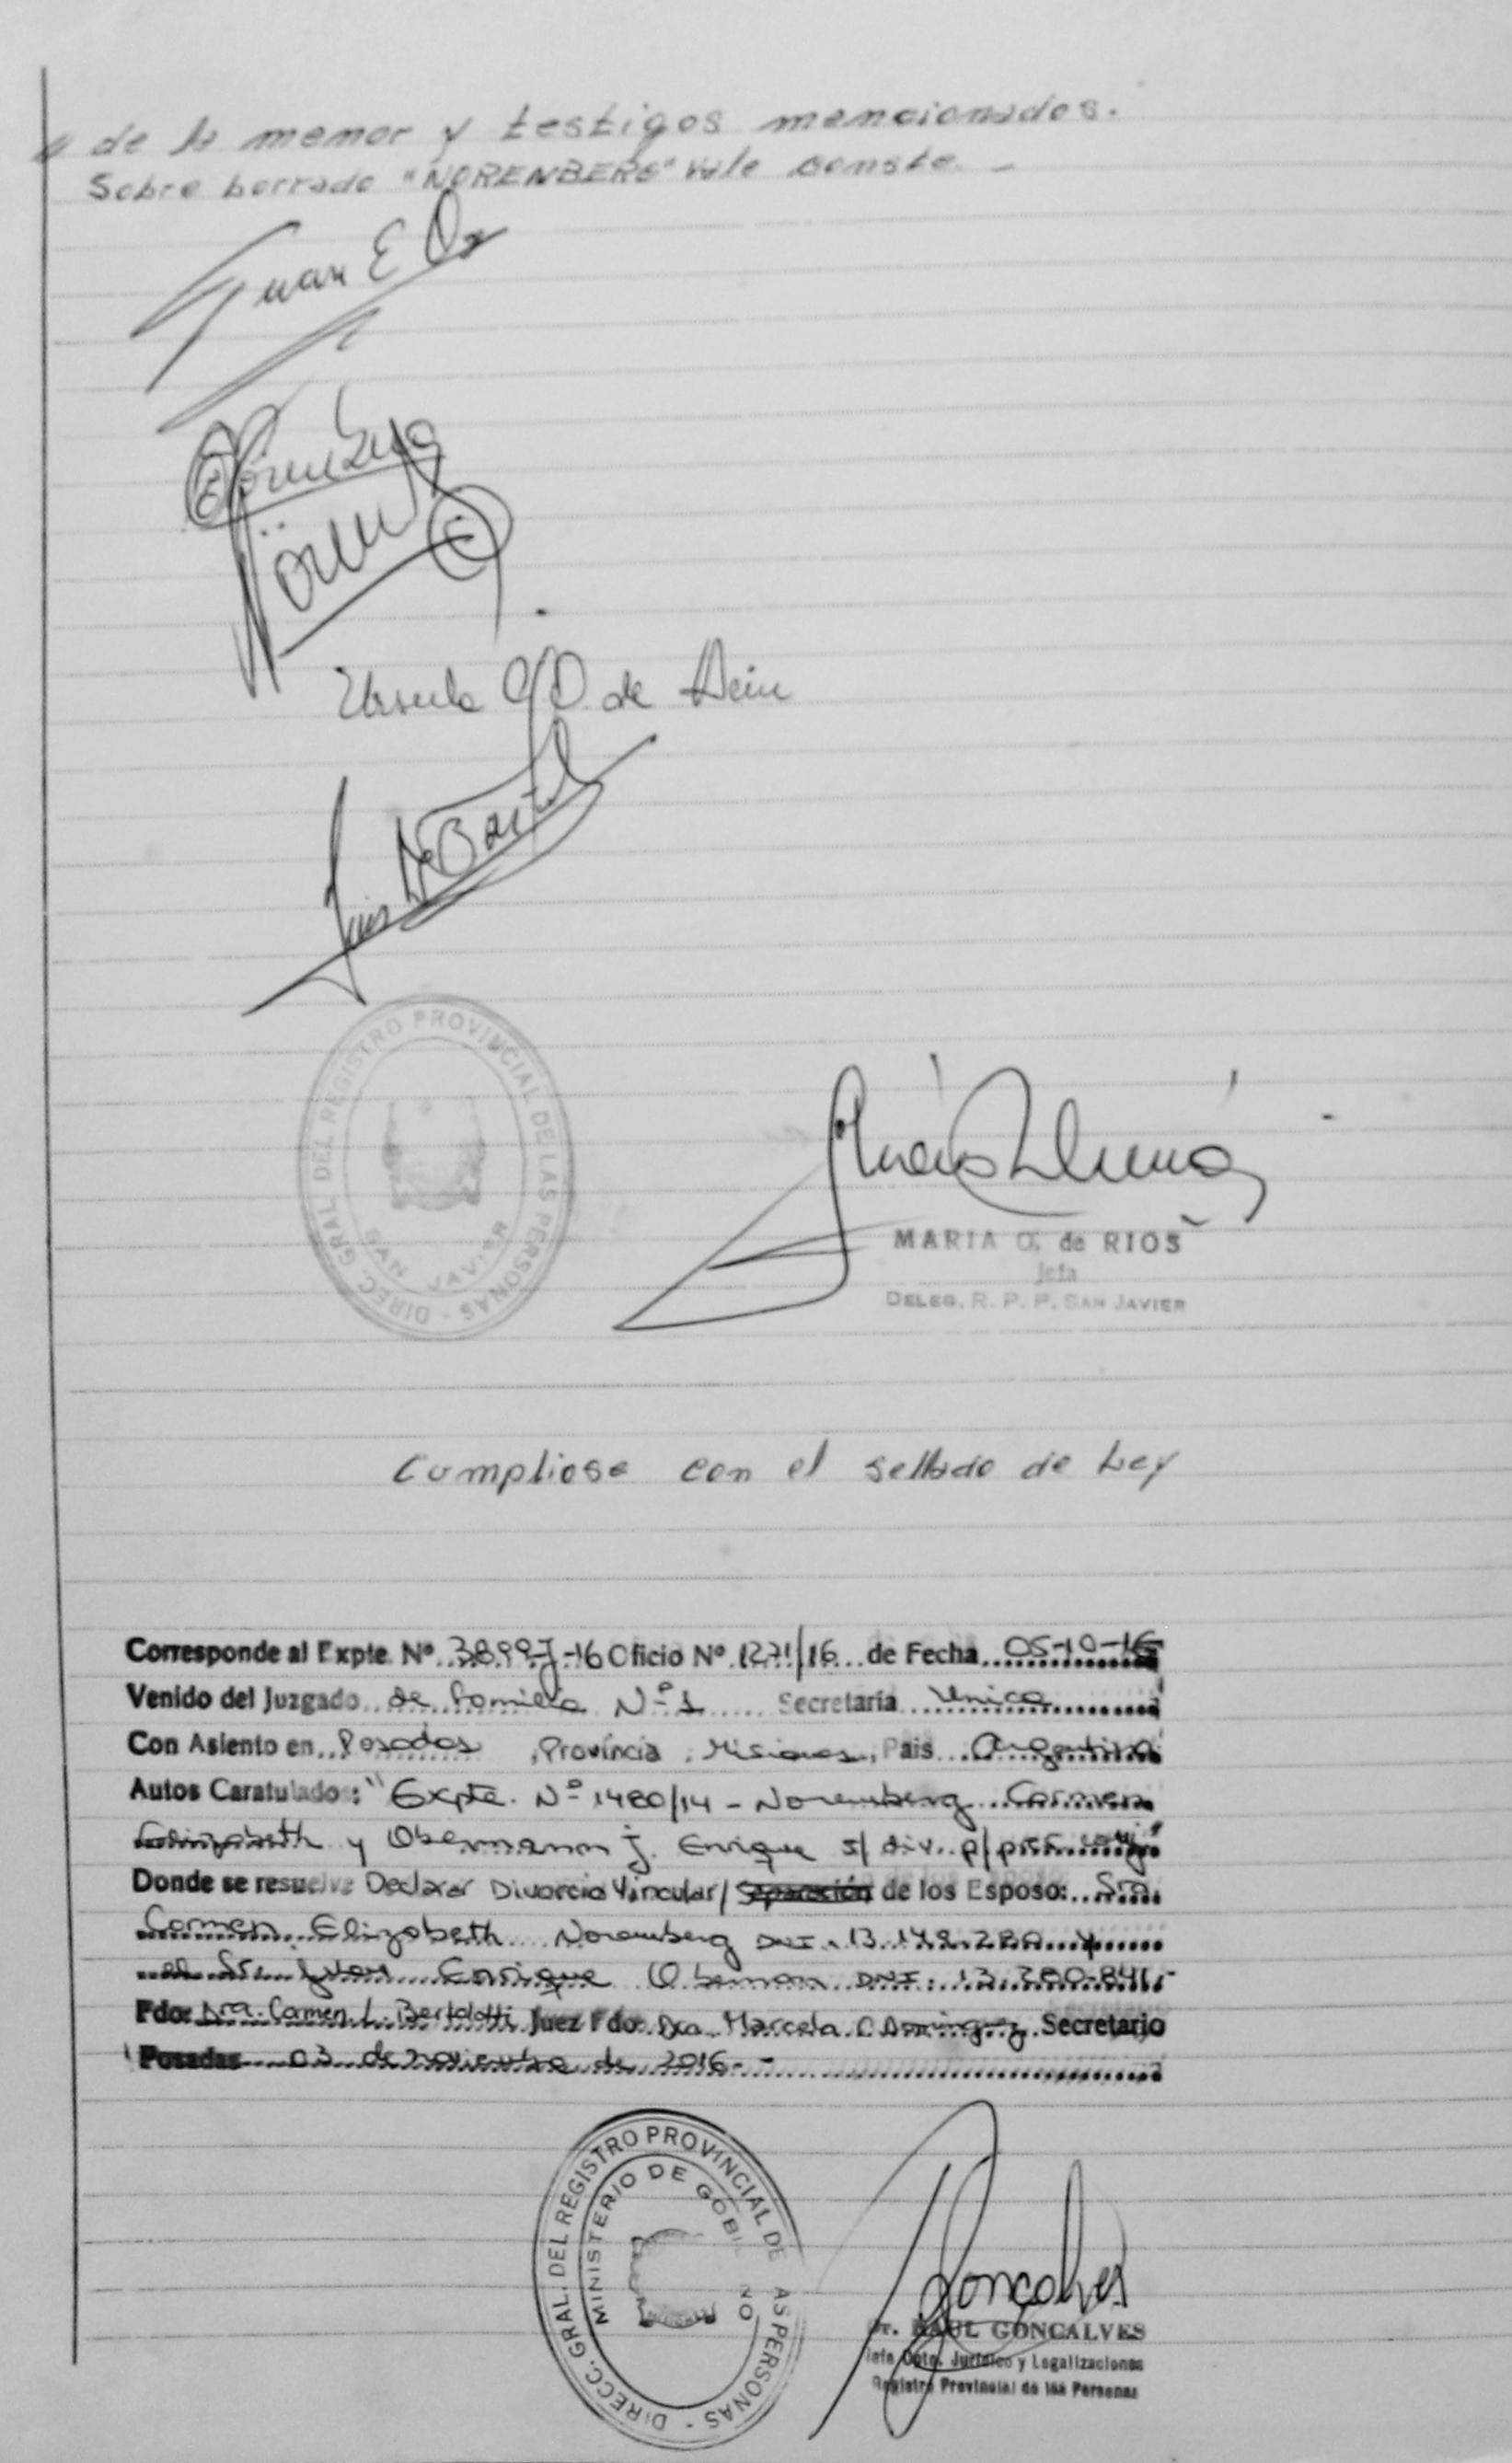 // de la menor y testigos mencionados.
Sobre borrado "NORENBERG" Vale conste. -
Juan E Ob
Ursula O. de Hein
Luis A. Bartel
DIREC. GRAL. DEL REGISTRO PROVINCIAL DE LAS PERSONAS -
SAN JAVIER
MARIA O. de RIOS
Jefa
DELEG. R. P. P. SAN JAVIER
Cumpliose con el sellado de Ley
Corresponde al Expte. Nº 3899-J-16 Oficio Nº 1271/16 de Fecha 05-10-16
Venido del Juzgado de Familia Nº 1 Secretaría Unica
Con Asiento en Posadas, Provincia Misiones, Pais Argentina
Autos Caratulado: "Expte. Nº 1480/14 - Noremberg Carmen
Elizabeth y Obermann J. Enrique s/ div. p/ pres. conj."
Donde se resuelve Declarar Divorcio Vincular/Separación de los Esposo: Sra.
Carmen Elizabeth Noremberg DNI. 13.148.280 y
el Sr. Juan Enrique Oberman DNI: 13.280.841.-
Fdo: Dra. Carmen L. Bertolotti Juez Fdo: Dra. Marcela C. Dominguez Secretario
Posadas 03 de noviembre de 2016.-
DIRECC. GRAL. DEL REGISTRO PROVINCIAL DE AS PERSONAS -
MINISTERIO DE GOBI NO
Goncalves
Dr. RAUL GONCALVES
Jefe Dpto. Jurídico y Legalizaciones
Registro Provincial de las Personas